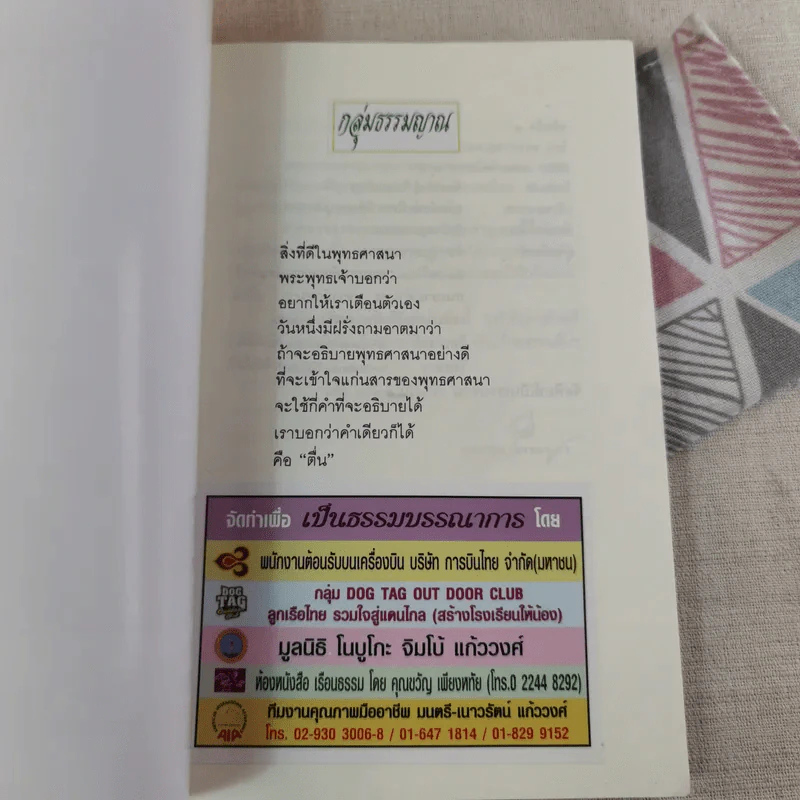 กลุ่มธรรมญาณ
สิ่งที่ดีในพุทธศาสนา
พระพุทธเจ้าบอกว่า
อยากให้เราเตือนตัวเอง
วันหนึ่งมีฝรั่งถามอาตมาว่า
ถ้าจะอธิบายพุทธศาสนาอย่างดี
ที่จะเข้าใจแก่นสารของพุทธศาสนา
จะใช้กี่คำที่จะอธิบายได้
เราบอกว่าคำเดียวก็ได้
คือ “ตื่น”
จัดทำเพื่อ เป็นธรรมบรรณาการ โดย
พนักงานต้อนรับบนเครื่องบิน บริษัท การบินไทย จำกัด(มหาชน)
DOG
TAG
กลุ่ม DOG TAG OUT DOOR CLUB
ลูกเรือไทย รวมใจสู่แดนไกล (สร้างโรงเรียนให้น้อง)
มูลนิธิ โนบูโกะ จิมโบ้ แก้ววงศ์
ห้องหนังสือ เรือนธรรม โดย คุณขวัญ เพียงหทัย (โทร.0 2244 8292)
AIA
ทีมงานคุณภาพมืออาชีพ มนตรี-เนาวรัตน์ แก้ววงศ์
โทร. 02-930 3006-8 / 01-647 1814 / 01-829 9152